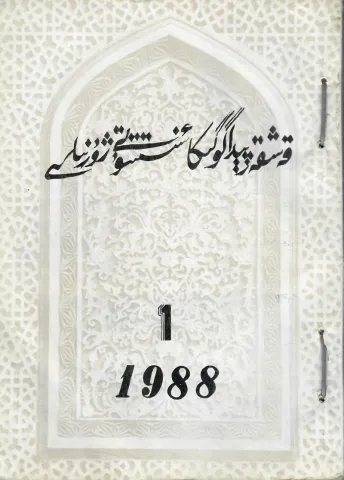 قەشقەر پېداگوگىكا ئىنستىتۇتى ژۇرنىلى
1
1988